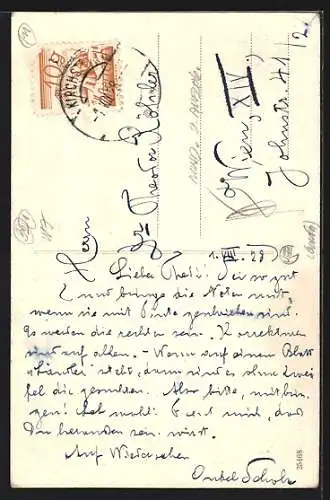 10 g
KIRCHS
Herrn
Dr Theodor Rohder
Wien, XIV.
Johnstr. 41/2.
1. VIII. 28
Lieber Thedi! Sei so gut
und bringe die Noten mit
wenn sie mit Tinte geschrieben sind.
Es werden die rechten sein. Korrekturen
sind auf allen. – Wenn auf einem Blatt
"Ländler" steht, dann sind es ohne Zwei-
fel die gesuchten. Also bitte, mitbrin-
gen! Leb wohl! Freut mich, dass
Du heraußen sein wirst.
Auf Wiedersehen
Onkel Scholz
25468